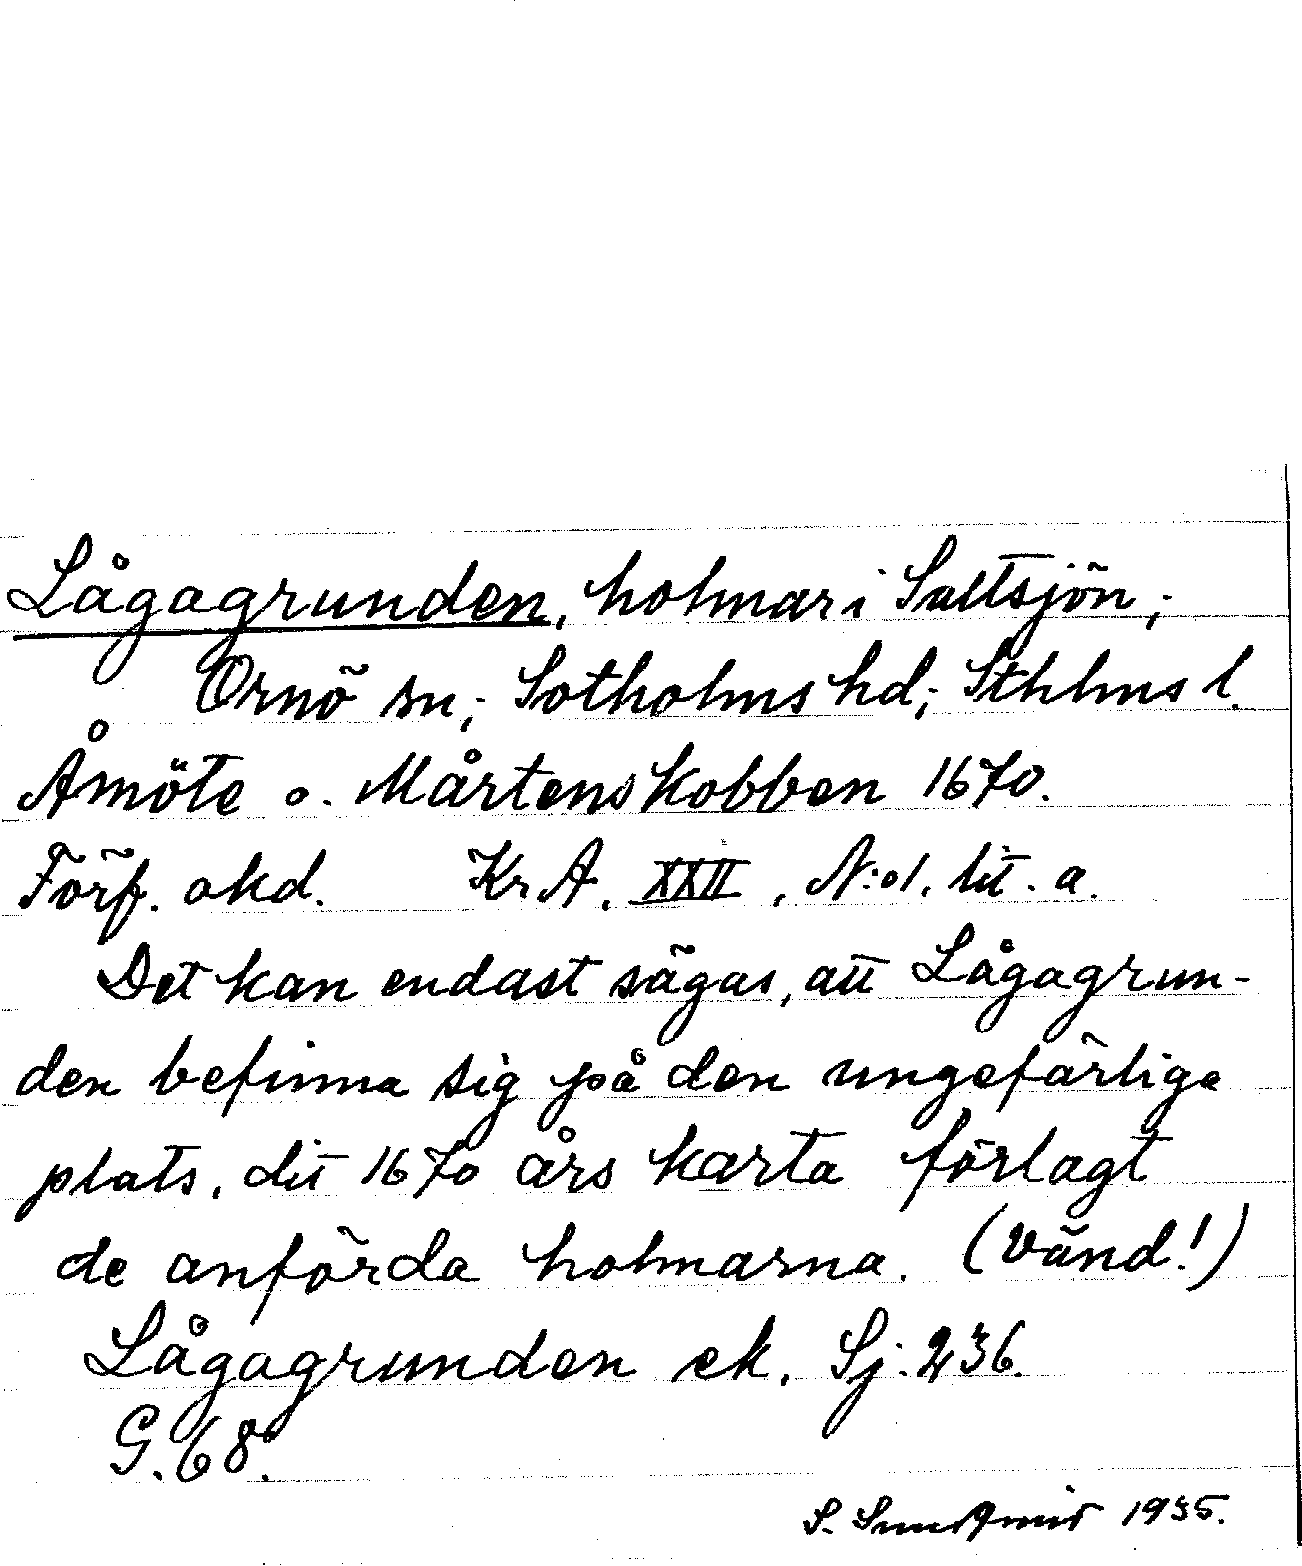 Lågagrunden, holmar i Saltsjön;
Ornö sn; Sotholms hd; Sthlms l.
Åmöte o. Mårtenskobben 1670.
Förf. okd. Kr A. XXII, N:o 1. lit. a.
Det kan endast sägas, att Lågagrun-
den befinna sig på den ungefärliga
plats, dit 1670 års karta förlagt
de anförda holmarna. (Vänd!)
Lågagrunden ek. Sj. 236.
G. 68.
S. 1935.